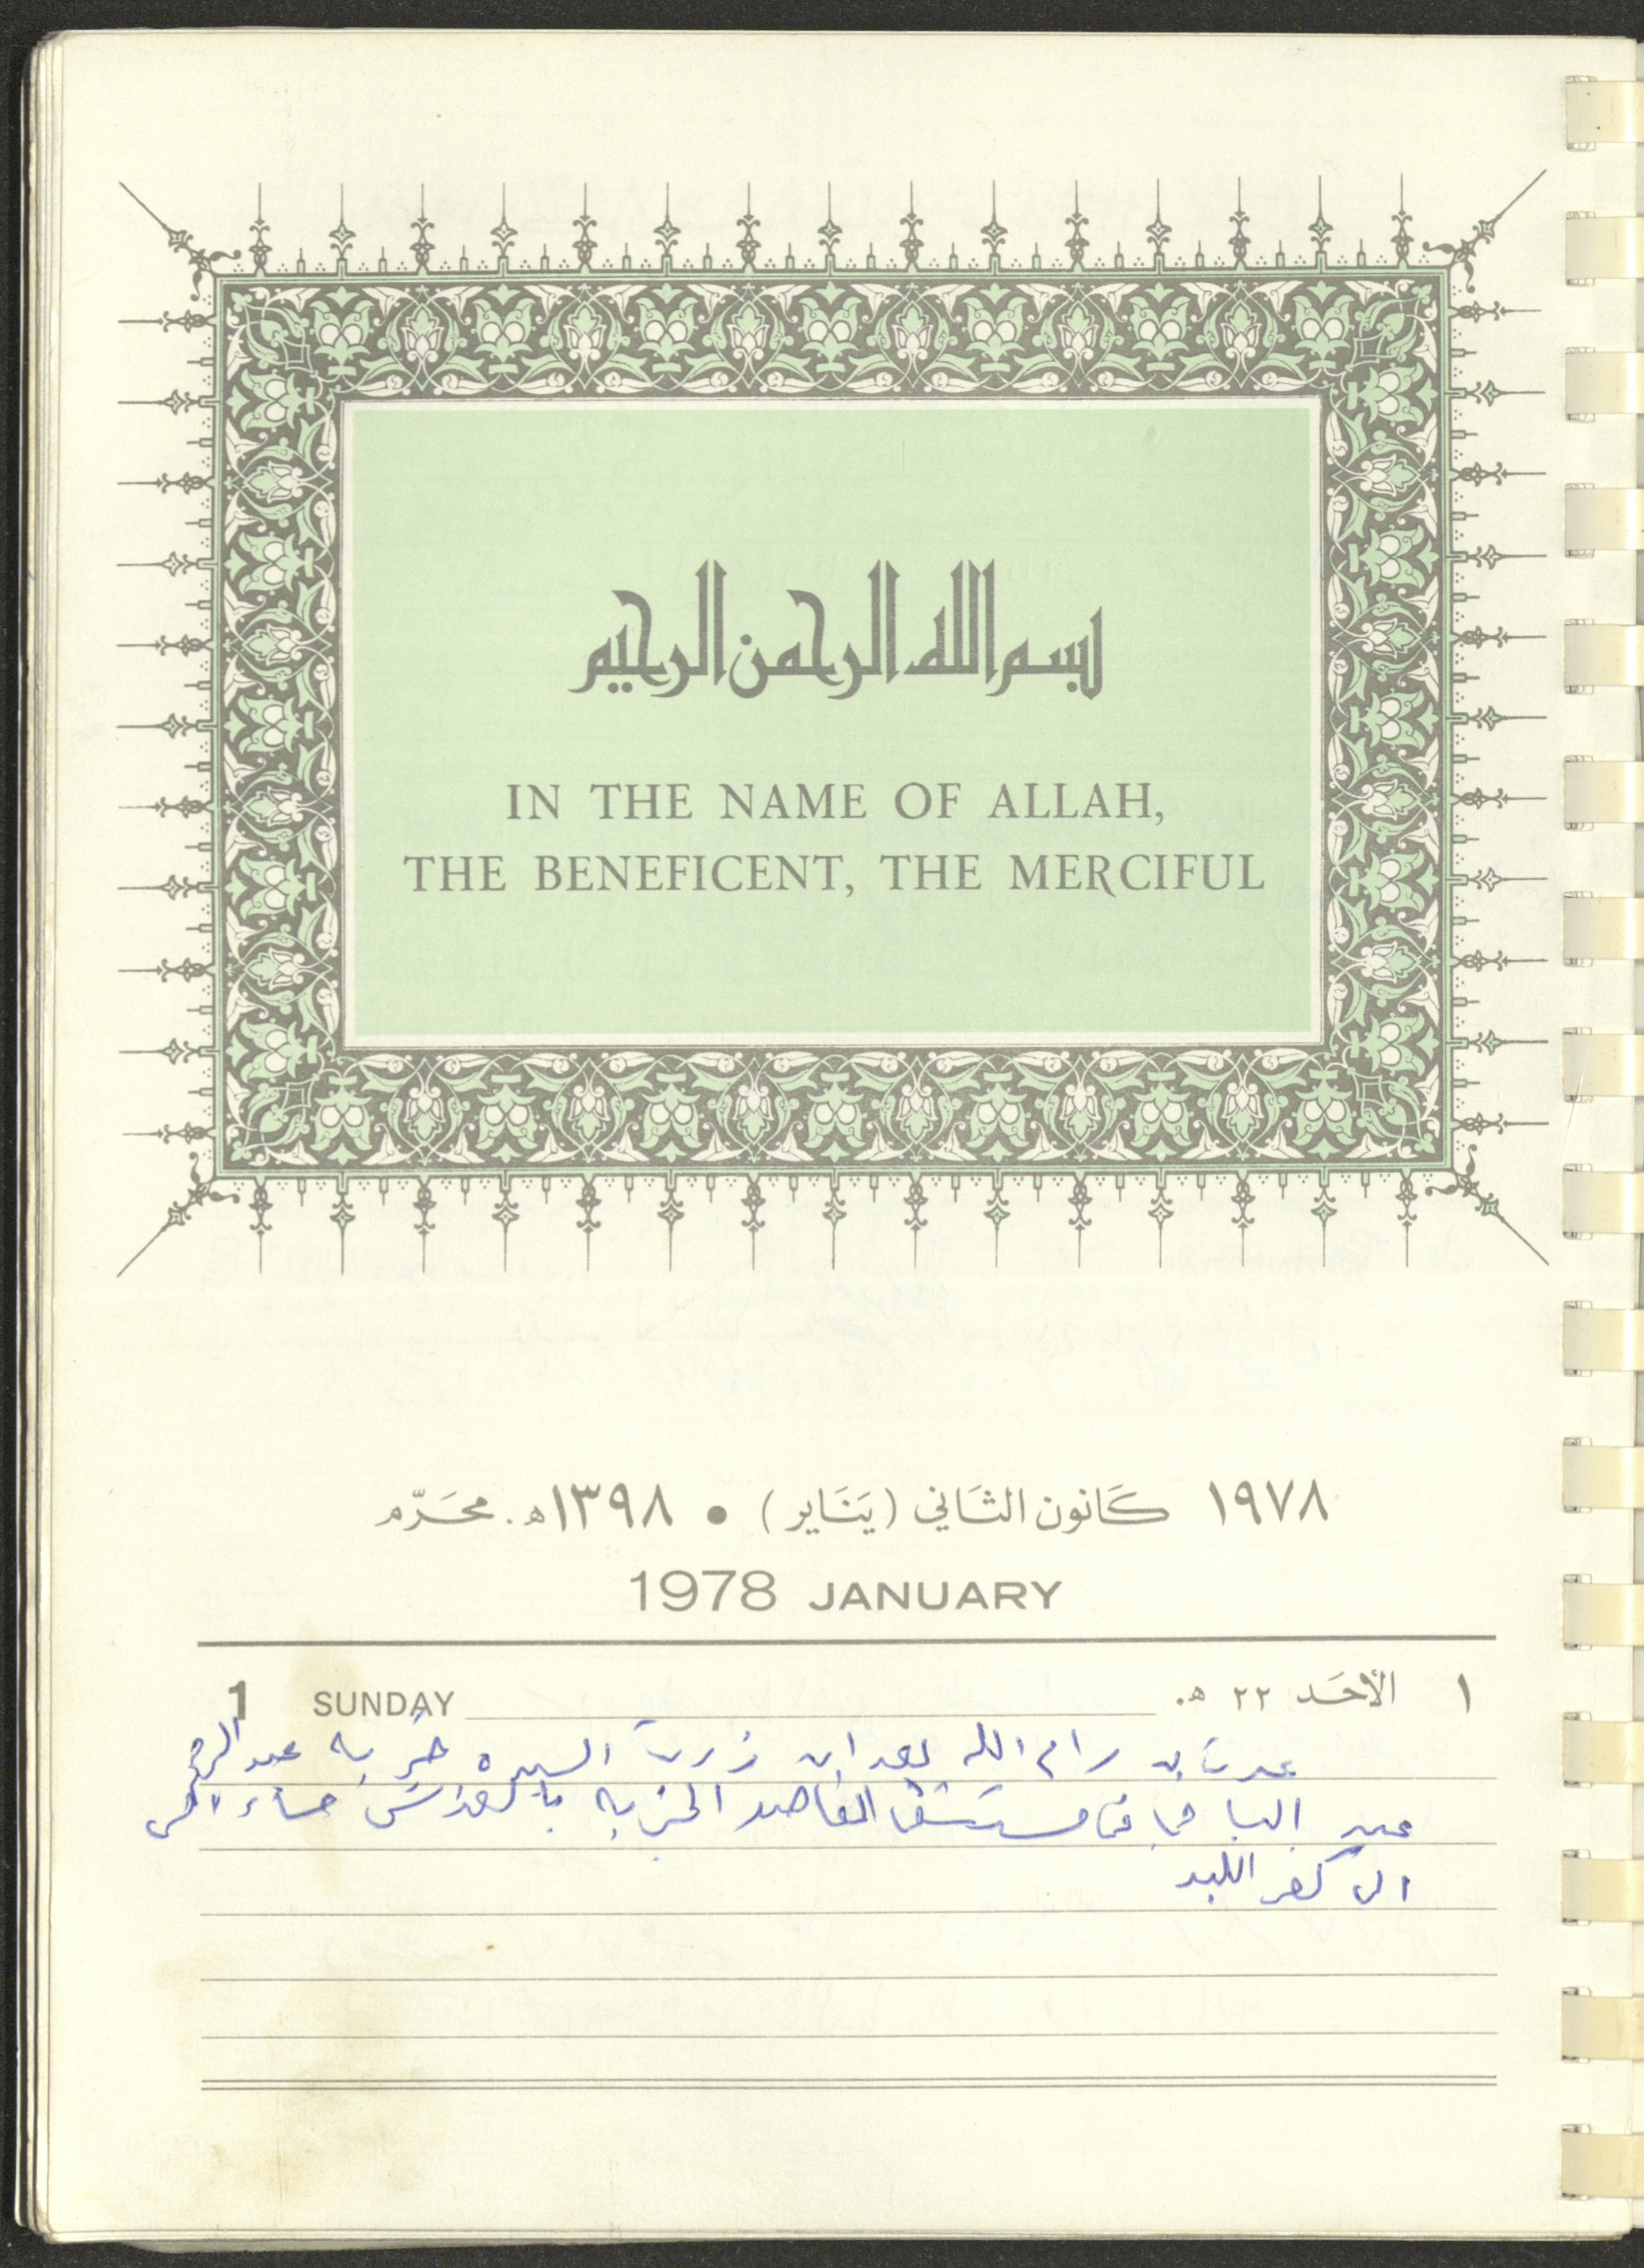 بسم الله الرحمن الرحيم
IN THE NAME OF ALLAH,
THE BENEFICENT, THE MERCIFUL
١٩٧٨ كَانون الثَاني (يَنَاير) • ١٣٩٨ه. محَرّم
1978 JANUARY
1 SUNDAY ١ الأحَد ٢٢ ه.
عدت من رام الله بعد ان زرت السيده خيريه عبد الرحمن
عبد الباقي في مستشفى المقاصد الخيريه بالقدس مساء امس
الى كفر اللبد